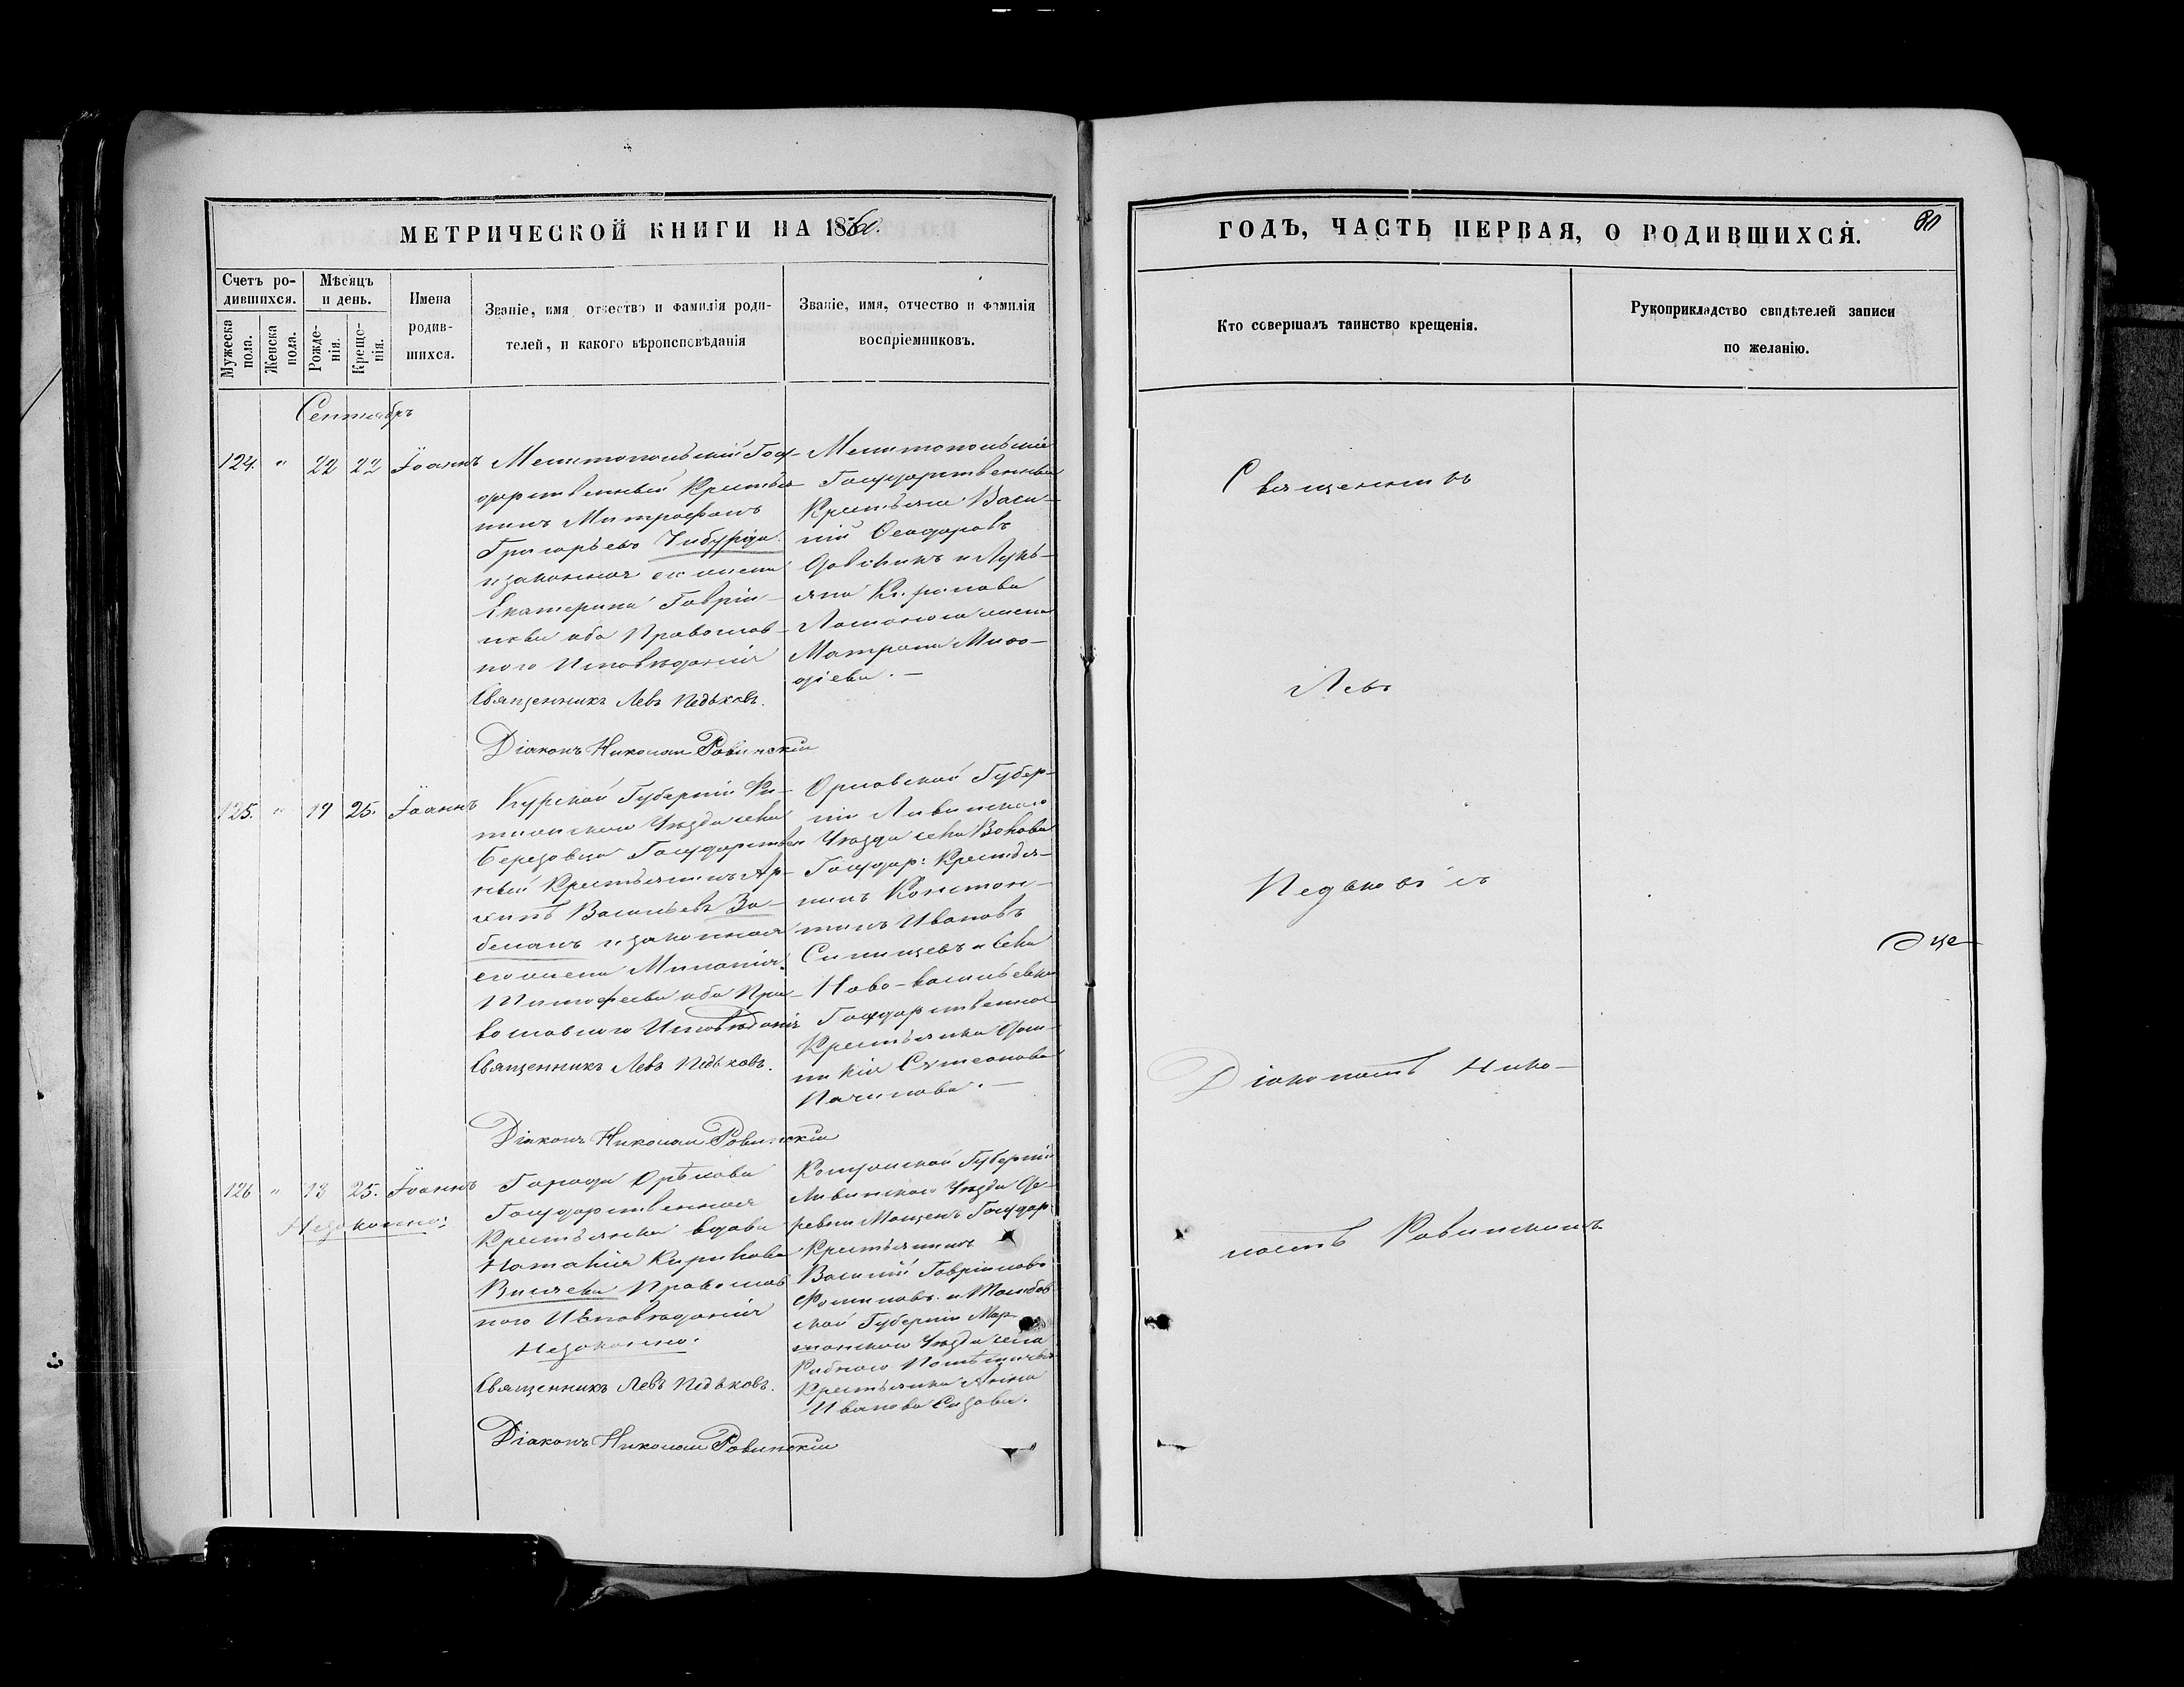 МЕТРИЧЕСКОЙ КНИГИ НА 1860.
Счетъ ро-
дившихся.
Мѣсяцъ
и день.
Мужеска
пола.
Женска
пола.
Рожде-
нія.
Креще-
нія.
Имена
родив-
шихся.
Званіе, имя отчество и фамилія роди-
телей, и какого вѣроисповѣданія
Званіе, имя, отчество и фамилія
воспріемниковъ.
Сентябрь
124. " 22 22 Іоаннъ
Мелитопольскій Госу-
дарственный Крестья-
нинъ Митрофанъ
Григорьевъ Чибурда
и законная его жена
Екатерина Гавріи-
лова оба Православ-
наго Исповѣданія
Священникъ Левъ Педьковъ.
Діаконъ Николай Ровинскій
Мелитопольскіе
Государственные
Крестьяне Васи-
лій Ѳеодоровъ
и Лукь-
яна
жена
Матрона Меѳо-
діева. —
125. " 19 25. Іоаннъ
Курской Губерніи
Уѣзда села
Березовца Государствен
ный Крестьянинъ
Васильевъ За-
и законная
его жена Миланія
Тимофеева оба Пра-
вославнаго Исповѣданія
Священникъ Левъ Педьковъ.
Діаконъ Николай Ровинскій
Орловской Губер-
ніи Ливенскаго
Уѣзда села Волова
Государ: Крестья-
нинъ Констан-
тинъ Ивановъ
и села
Ново-васильевки
Государственная
Крестьянка
Симеонова
126 " 13 25. Іоаннъ
Незаконно:
Города Орѣхова
Государственная
Крестьянка вдова
Наталія Кирилова
Православ
наго Исповѣданія
Незаконно:
Священникъ Левъ Педьковъ.
Діаконъ Николай Ровинскій
Губерніи
Уѣзда Де-
ревни Государ
Крестьянинъ
Василій Гавріиловъ
и Тамбов
ской Губерніи
Уѣзда села
Крестьянка Анна
Иванова Сизова.
ГОДЪ, ЧАСТЬ ПЕРВАЯ, О РОДИВШИХСЯ.
80
Кто совершалъ таинство крещенія.
Рукоприкладство свидѣтелей записи
по желанію.
Священникъ
Левъ
Педьковъ съ
Діакономъ Нико-
лаемъ Ровинскимъ